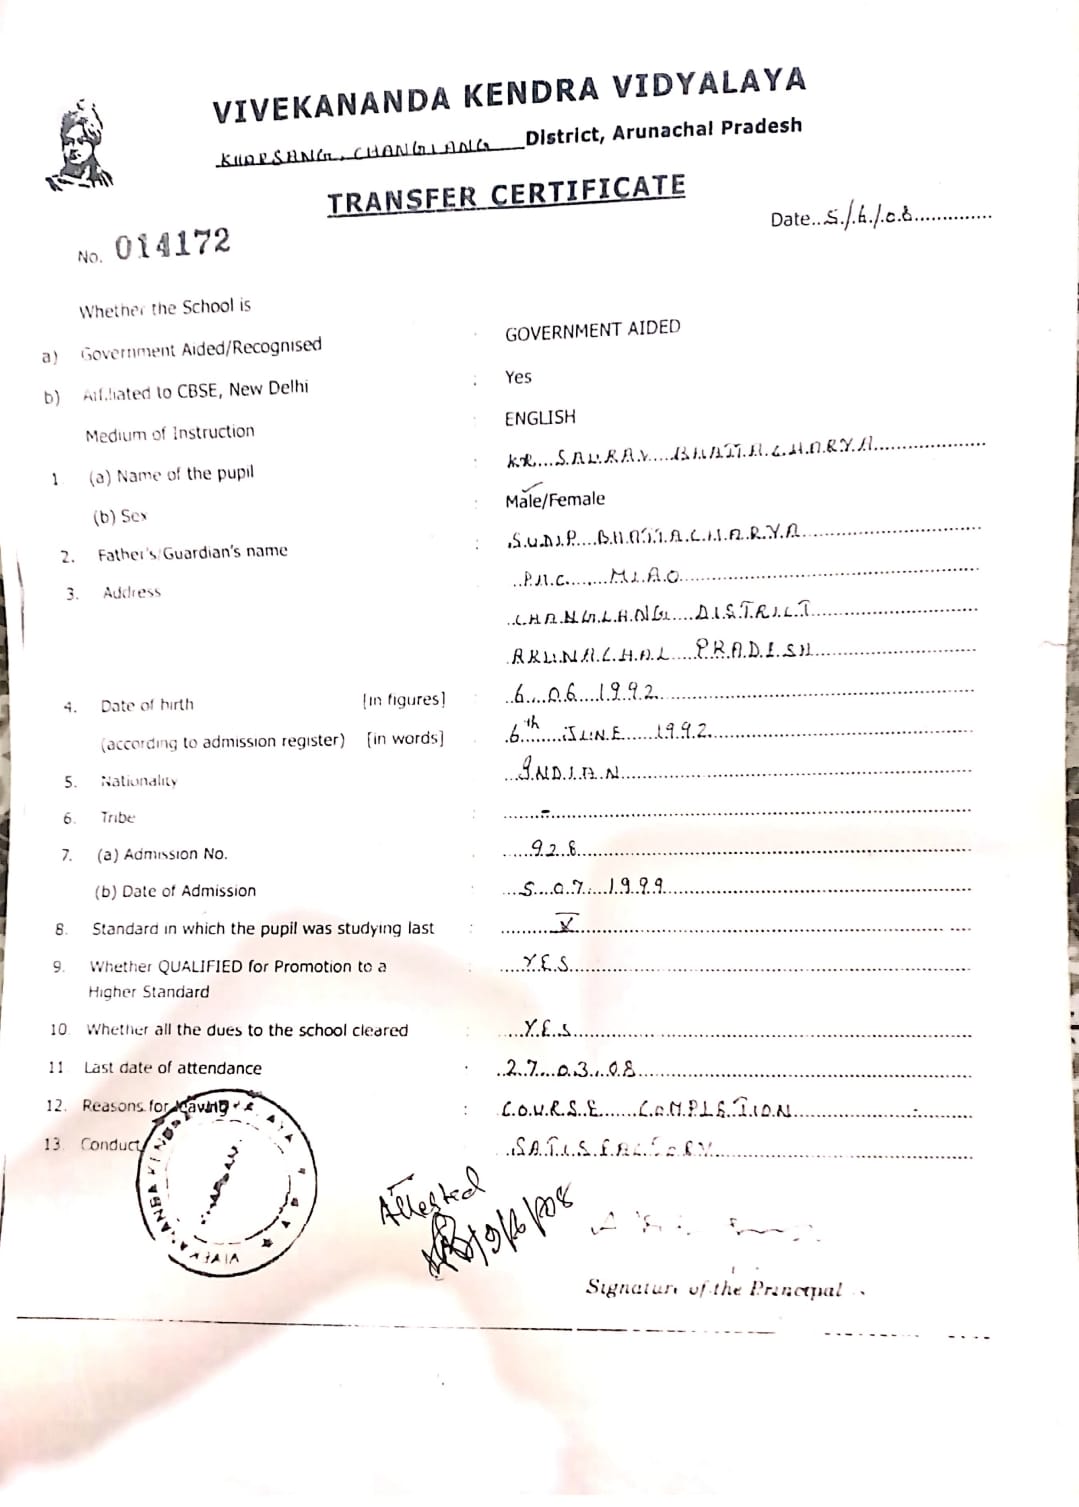 VIVEKANANDA KENDRA VIDYALAYA
KHARSANG, CHANGLANG District, Arunachal Pradesh
TRANSFER CERTIFICATE
Date..5/6/08
No. 014172
Whether the School is
a) Government Aided/Recognised : GOVERNMENT AIDED
b) Affiliated to CBSE, New Delhi : Yes
Medium of Instruction : ENGLISH
1 (a) Name of the pupil : KR. SAURAV BHATTACHARYA
(b) Sex : Male/Female
2. Father's/Guardian's name : SUDIP BHATTACHARYA
3. Address P.H.C. MIAO
CHANGLANG DISTRICT
ARUNACHAL PRADESH
4. Date of birth [in figures] : 6 06 1992
(according to admission register) [in words] 6th JUNE 1992
5. Nationality INDIAN
6. Tribe : -
7. (a) Admission No. 928
(b) Date of Admission : 5 07 1999
8. Standard in which the pupil was studying last : X
9. Whether QUALIFIED for Promotion to a : YES
Higher Standard
10 Whether all the dues to the school cleared : YES
11 Last date of attendance 27 03 08
12. Reasons for leaving : COURSE COMPLETION
13. Conduct SATISFACTORY
Attested
Signature of the Principal